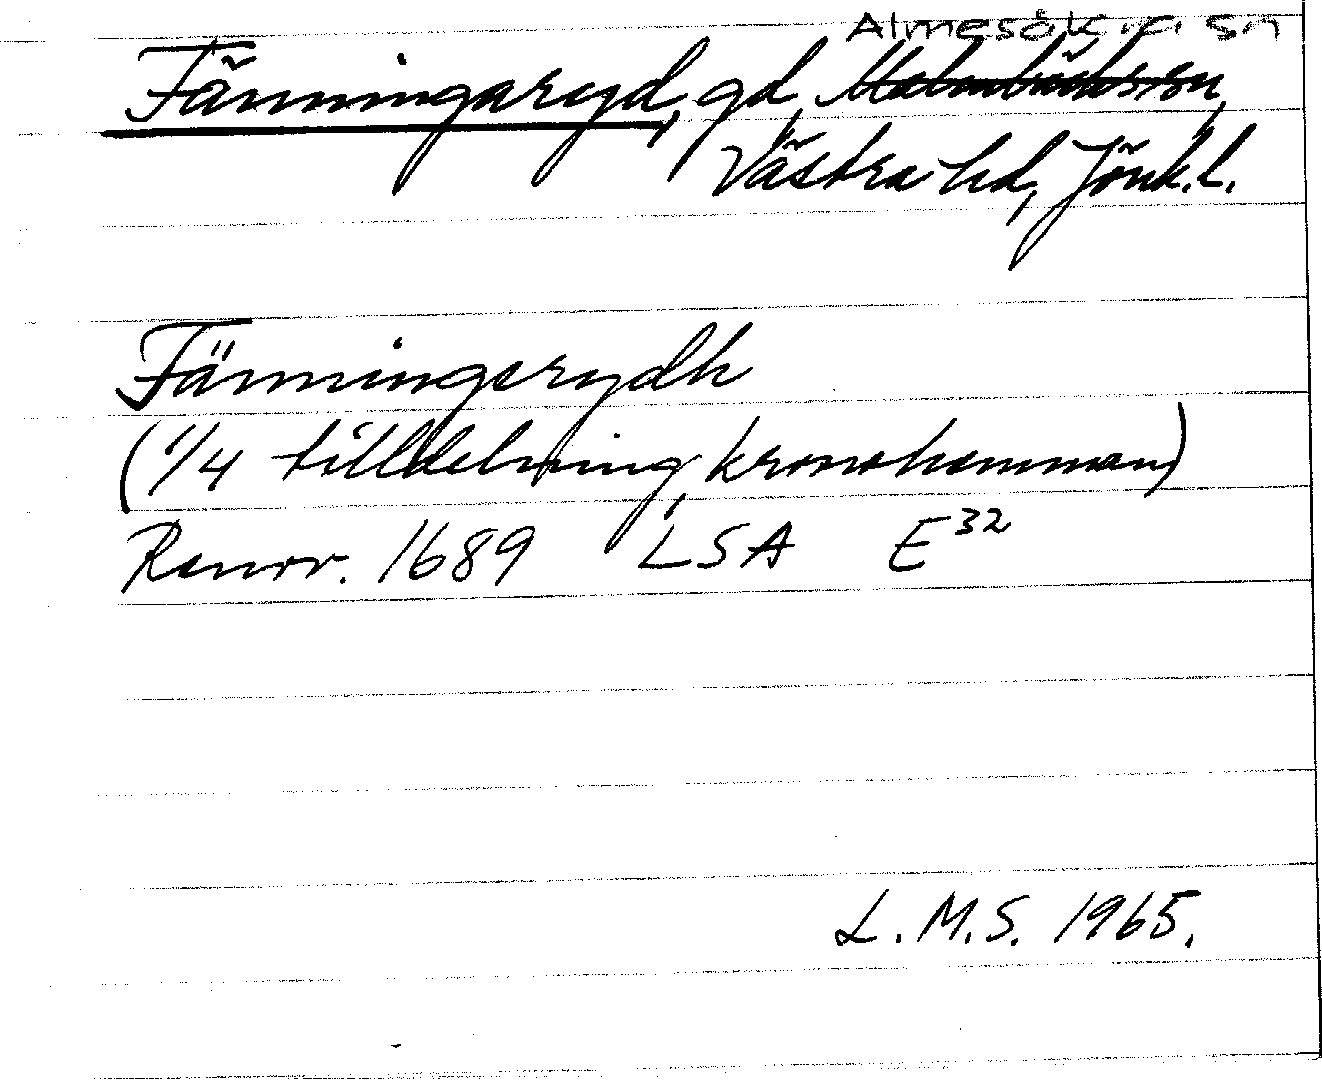 Almesåkra sn
Fänningaryd, gd, Malmbäcks sn,
Västra hd, Jönk. l.
Fänningsrydh
(1/4 tilldelning, kronohemman)
Renov. 1689 LSA E32
L.M.S. 1965.